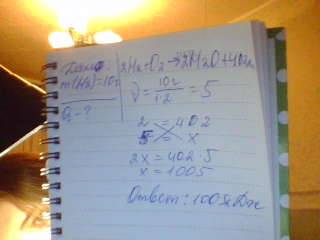 Дано:
m(H2)=10г
Q-?
2H2+O2→2H2O+402
ν=10г/1·2=5
2 = 402
5 = x
2x=402·5
x=1005
Ответ: 1005кДж